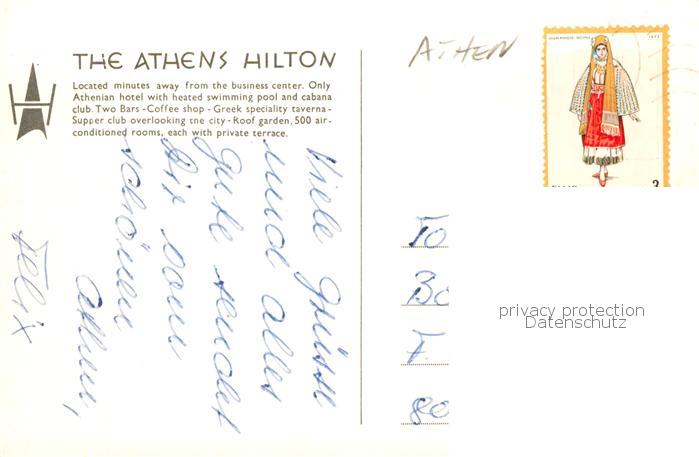 THE ATHENS HILTON
Located minutes away from the business center. Only
Athenian hotel with heated swimming pool and cabana
club. Two Bars - Coffee shop - Greek speciality taverna -
Supper club overlooking tne city - Roof garden, 500 air-
conditioned rooms, each with private terrace.
Viele Grüsse
und alles
Gute sendet
Dir vom
schönen
Athen,
Felix
ATHEN
3
Fo
Bo
F.
80
privacy protection
Datenschutz